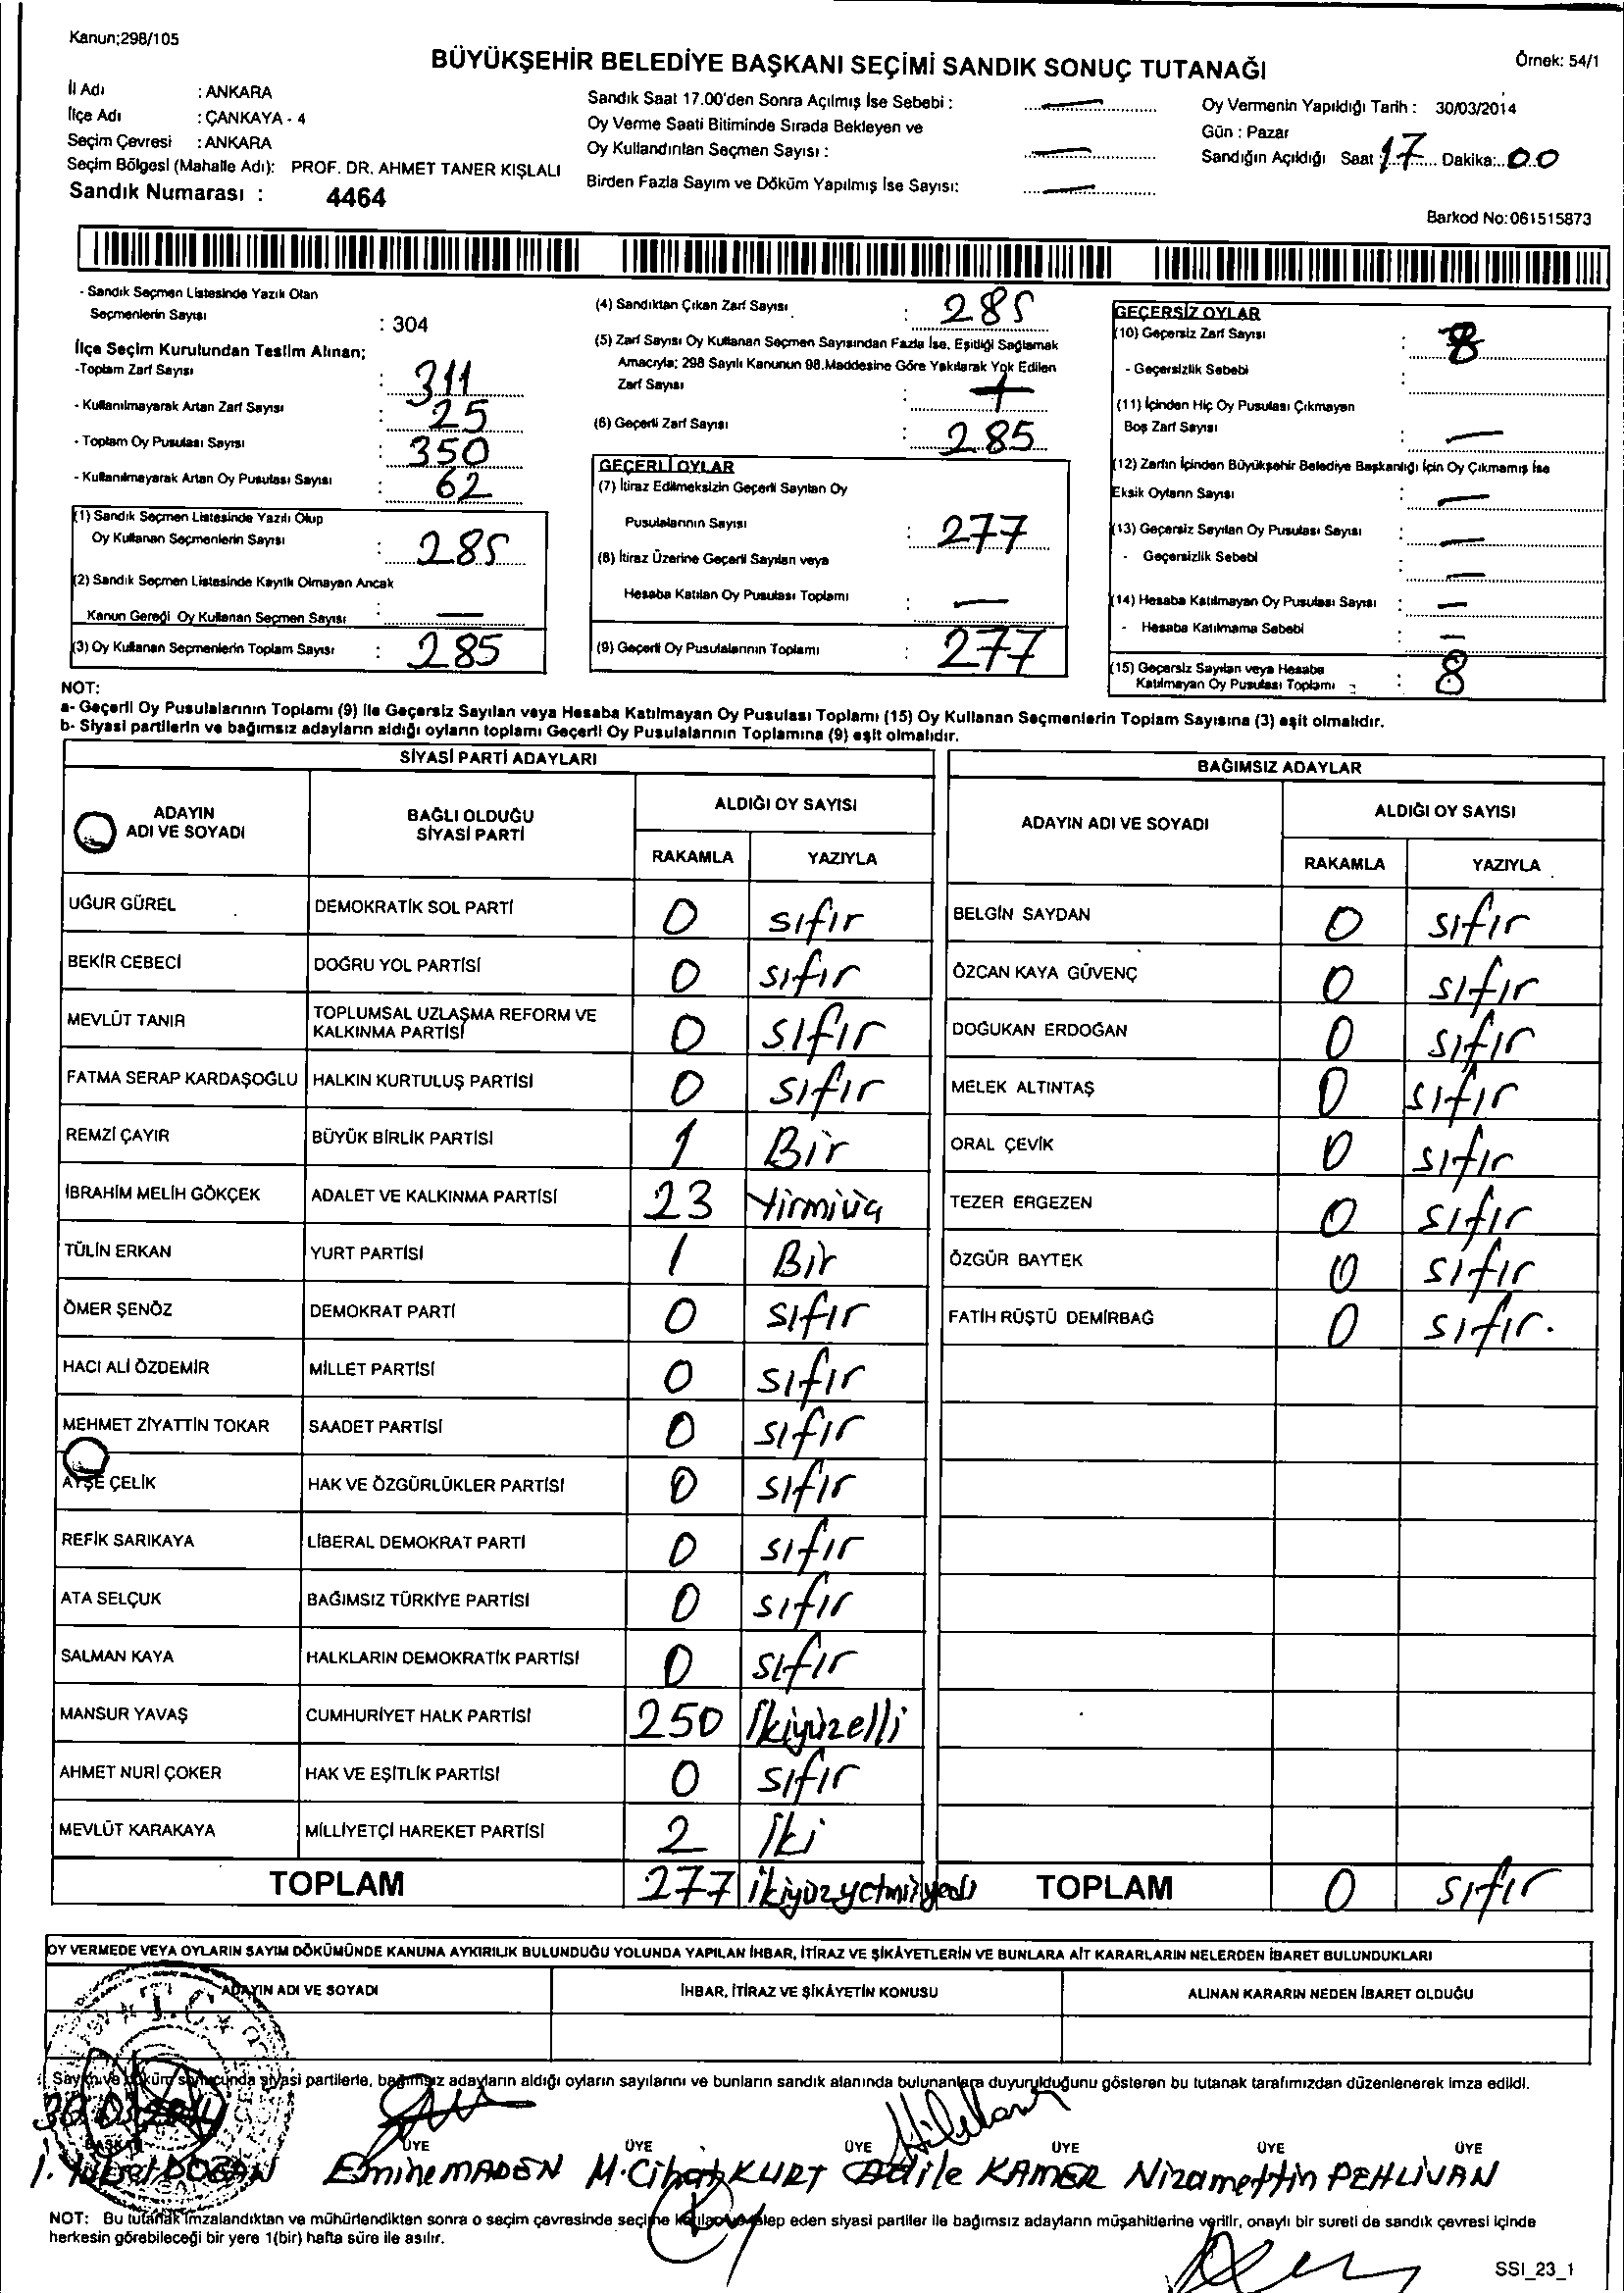 Kanun;298/105
BÜYÜKŞEHİR BELEDİYE BAŞKANI SEÇİMİ SANDIK SONUÇ TUTANAĞI
Örnek: 54/1
İl Adı : ANKARA
İlçe Adı : ÇANKAYA - 4
Seçim Çevresi : ANKARA
Seçim Bölgesi (Mahalle Adı): PROF. DR. AHMET TANER KIŞLALI
Sandık Numarası : 4464
Sandık Saat 17.00'den Sonra Açılmış İse Sebebi : —
Oy Verme Saati Bitiminde Sırada Bekleyen ve
Oy Kullandırılan Seçmen Sayısı : —
Birden Fazla Sayım ve Döküm Yapılmış İse Sayısı: —
Oy Vermenin Yapıldığı Tarih : 30/03/2014
Gün : Pazar
Sandığın Açıldığı Saat : 17 Dakika: 00
Barkod No:061515873
- Sandık Seçmen Listesinde Yazılı Olan
Seçmenlerin Sayısı : 304
İlçe Seçim Kurulundan Teslim Alınan;
-Toplam Zarf Sayısı : 311
- Kullanılmayarak Artan Zarf Sayısı : 25
- Toplam Oy Pusulası Sayısı : 350
- Kullanılmayarak Artan Oy Pusulası Sayısı : 62
(1) Sandık Seçmen Listesinde Yazılı Olup
Oy Kullanan Seçmenlerin Sayısı : 285
(2) Sandık Seçmen Listesinde Kayıtlı Olmayan Ancak
Kanun Gereği Oy Kullanan Seçmen Sayısı : —
(3) Oy Kullanan Seçmenlerin Toplam Sayısı : 285
(4) Sandıktan Çıkan Zarf Sayısı : 285
(5) Zarf Sayısı Oy Kullanan Seçmen Sayısından Fazla İse, Eşitliği Sağlamak
Amacıyla; 298 Sayılı Kanunun 98.Maddesine Göre Yakılarak Yok Edilen
Zarf Sayısı :
(6) Geçerli Zarf Sayısı : 285
GEÇERLİ OYLAR
(7) İtiraz Edilmeksizin Geçerli Sayılan Oy
Pusulalarının Sayısı : 277
(8) İtiraz Üzerine Geçerli Sayılan veya
Hesaba Katılan Oy Pusulası Toplamı : —
(9) Geçerli Oy Pusulalarının Toplamı : 277
GEÇERSİZ OYLAR
(10) Geçersiz Zarf Sayısı : 8
- Geçersizlik Sebebi :
(11) İçinden Hiç Oy Pusulası Çıkmayan
Boş Zarf Sayısı : —
(12) Zarfın İçinden Büyükşehir Belediye Başkanlığı İçin Oy Çıkmamış İse
Eksik Oyların Sayısı : —
(13) Geçersiz Sayılan Oy Pusulası Sayısı : —
- Geçersizlik Sebebi : —
(14) Hesaba Katılmayan Oy Pusulası Sayısı : —
- Hesaba Katılmama Sebebi : —
(15) Geçersiz Sayılan veya Hesaba
Katılmayan Oy Pusulası Toplamı : 8
NOT:
a- Geçerli Oy Pusulalarının Toplamı (9) İle Geçersiz Sayılan veya Hesaba Katılmayan Oy Pusulası Toplamı (15) Oy Kullanan Seçmenlerin Toplam Sayısına (3) eşit olmalıdır.
b- Siyasi partilerin ve bağımsız adayların aldığı oyların toplamı Geçerli Oy Pusulalarının Toplamına (9) eşit olmalıdır.
SİYASİ PARTİ ADAYLARI
ADAYIN ADI VE SOYADI BAĞLI OLDUĞU SİYASİ PARTİ ALDIĞI OY SAYISI
RAKAMLA YAZIYLA
UĞUR GÜREL DEMOKRATİK SOL PARTİ 0 sıfır
BEKİR CEBECİ DOĞRU YOL PARTİSİ 0 sıfır
MEVLÜT TANIR TOPLUMSAL UZLAŞMA REFORM VE KALKINMA PARTİSİ 0 sıfır
FATMA SERAP KARDAŞOĞLU HALKIN KURTULUŞ PARTİSİ 0 sıfır
REMZİ ÇAYIR BÜYÜK BİRLİK PARTİSİ 1 Bir
İBRAHİM MELİH GÖKÇEK ADALET VE KALKINMA PARTİSİ 23 Yirmiüç
TÜLİN ERKAN YURT PARTİSİ 1 Bir
ÖMER ŞENÖZ DEMOKRAT PARTİ 0 sıfır
HACI ALİ ÖZDEMİR MİLLET PARTİSİ 0 sıfır
MEHMET ZİYATTİN TOKAR SAADET PARTİSİ 0 sıfır
AYŞE ÇELİK HAK VE ÖZGÜRLÜKLER PARTİSİ 0 sıfır
REFİK SARIKAYA LİBERAL DEMOKRAT PARTİ 0 sıfır
ATA SELÇUK BAĞIMSIZ TÜRKİYE PARTİSİ 0 sıfır
SALMAN KAYA HALKLARIN DEMOKRATİK PARTİSİ 0 sıfır
MANSUR YAVAŞ CUMHURİYET HALK PARTİSİ 250 İkiyüzelli
AHMET NURİ ÇOKER HAK VE EŞİTLİK PARTİSİ 0 sıfır
MEVLÜT KARAKAYA MİLLİYETÇİ HAREKET PARTİSİ 2 İki
TOPLAM 277 ikiyüzyetmişyedi
BAĞIMSIZ ADAYLAR
ADAYIN ADI VE SOYADI ALDIĞI OY SAYISI
RAKAMLA YAZIYLA
BELGİN SAYDAN 0 sıfır
ÖZCAN KAYA GÜVENÇ 0 sıfır
DOĞUKAN ERDOĞAN 0 sıfır
MELEK ALTINTAŞ 0 sıfır
ORAL ÇEVİK 0 sıfır
TEZER ERGEZEN 0 sıfır
ÖZGÜR BAYTEK 0 sıfır
FATİH RÜŞTÜ DEMİRBAĞ 0 sıfır.
TOPLAM 0 sıfır
OY VERMEDE VEYA OYLARIN SAYIM DÖKÜMÜNDE KANUNA AYKIRILIK BULUNDUĞU YOLUNDA YAPILAN İHBAR, İTİRAZ VE ŞİKÂYETLERİN VE BUNLARA AİT KARARLARIN NELERDEN İBARET BULUNDUKLARI
ADAYIN ADI VE SOYADI İHBAR, İTİRAZ VE ŞİKÂYETİN KONUSU ALINAN KARARIN NEDEN İBARET OLDUĞU
Sayım ve döküm sonucunda siyasi partilerle, bağımsız adayların aldığı oyların sayılarını ve bunların sandık alanında bulunanlara duyurulduğunu gösteren bu tutanak tarafımızdan düzenlenerek imza edildi.
BAŞKAN ÜYE ÜYE ÜYE ÜYE ÜYE ÜYE
DOĞAN Emine MADEN M.Cihat KURT Adile KAMER Nizamettin PEHLİVAN
NOT: Bu tutanak imzalandıktan ve mühürlendikten sonra o seçim çevresinde seçime katılan ve talep eden siyasi partiler ile bağımsız adayların müşahitlerine verilir, onaylı bir sureti de sandık çevresi içinde
herkesin görebileceği bir yere 1(bir) hafta süre ile asılır.
SSI_23_1